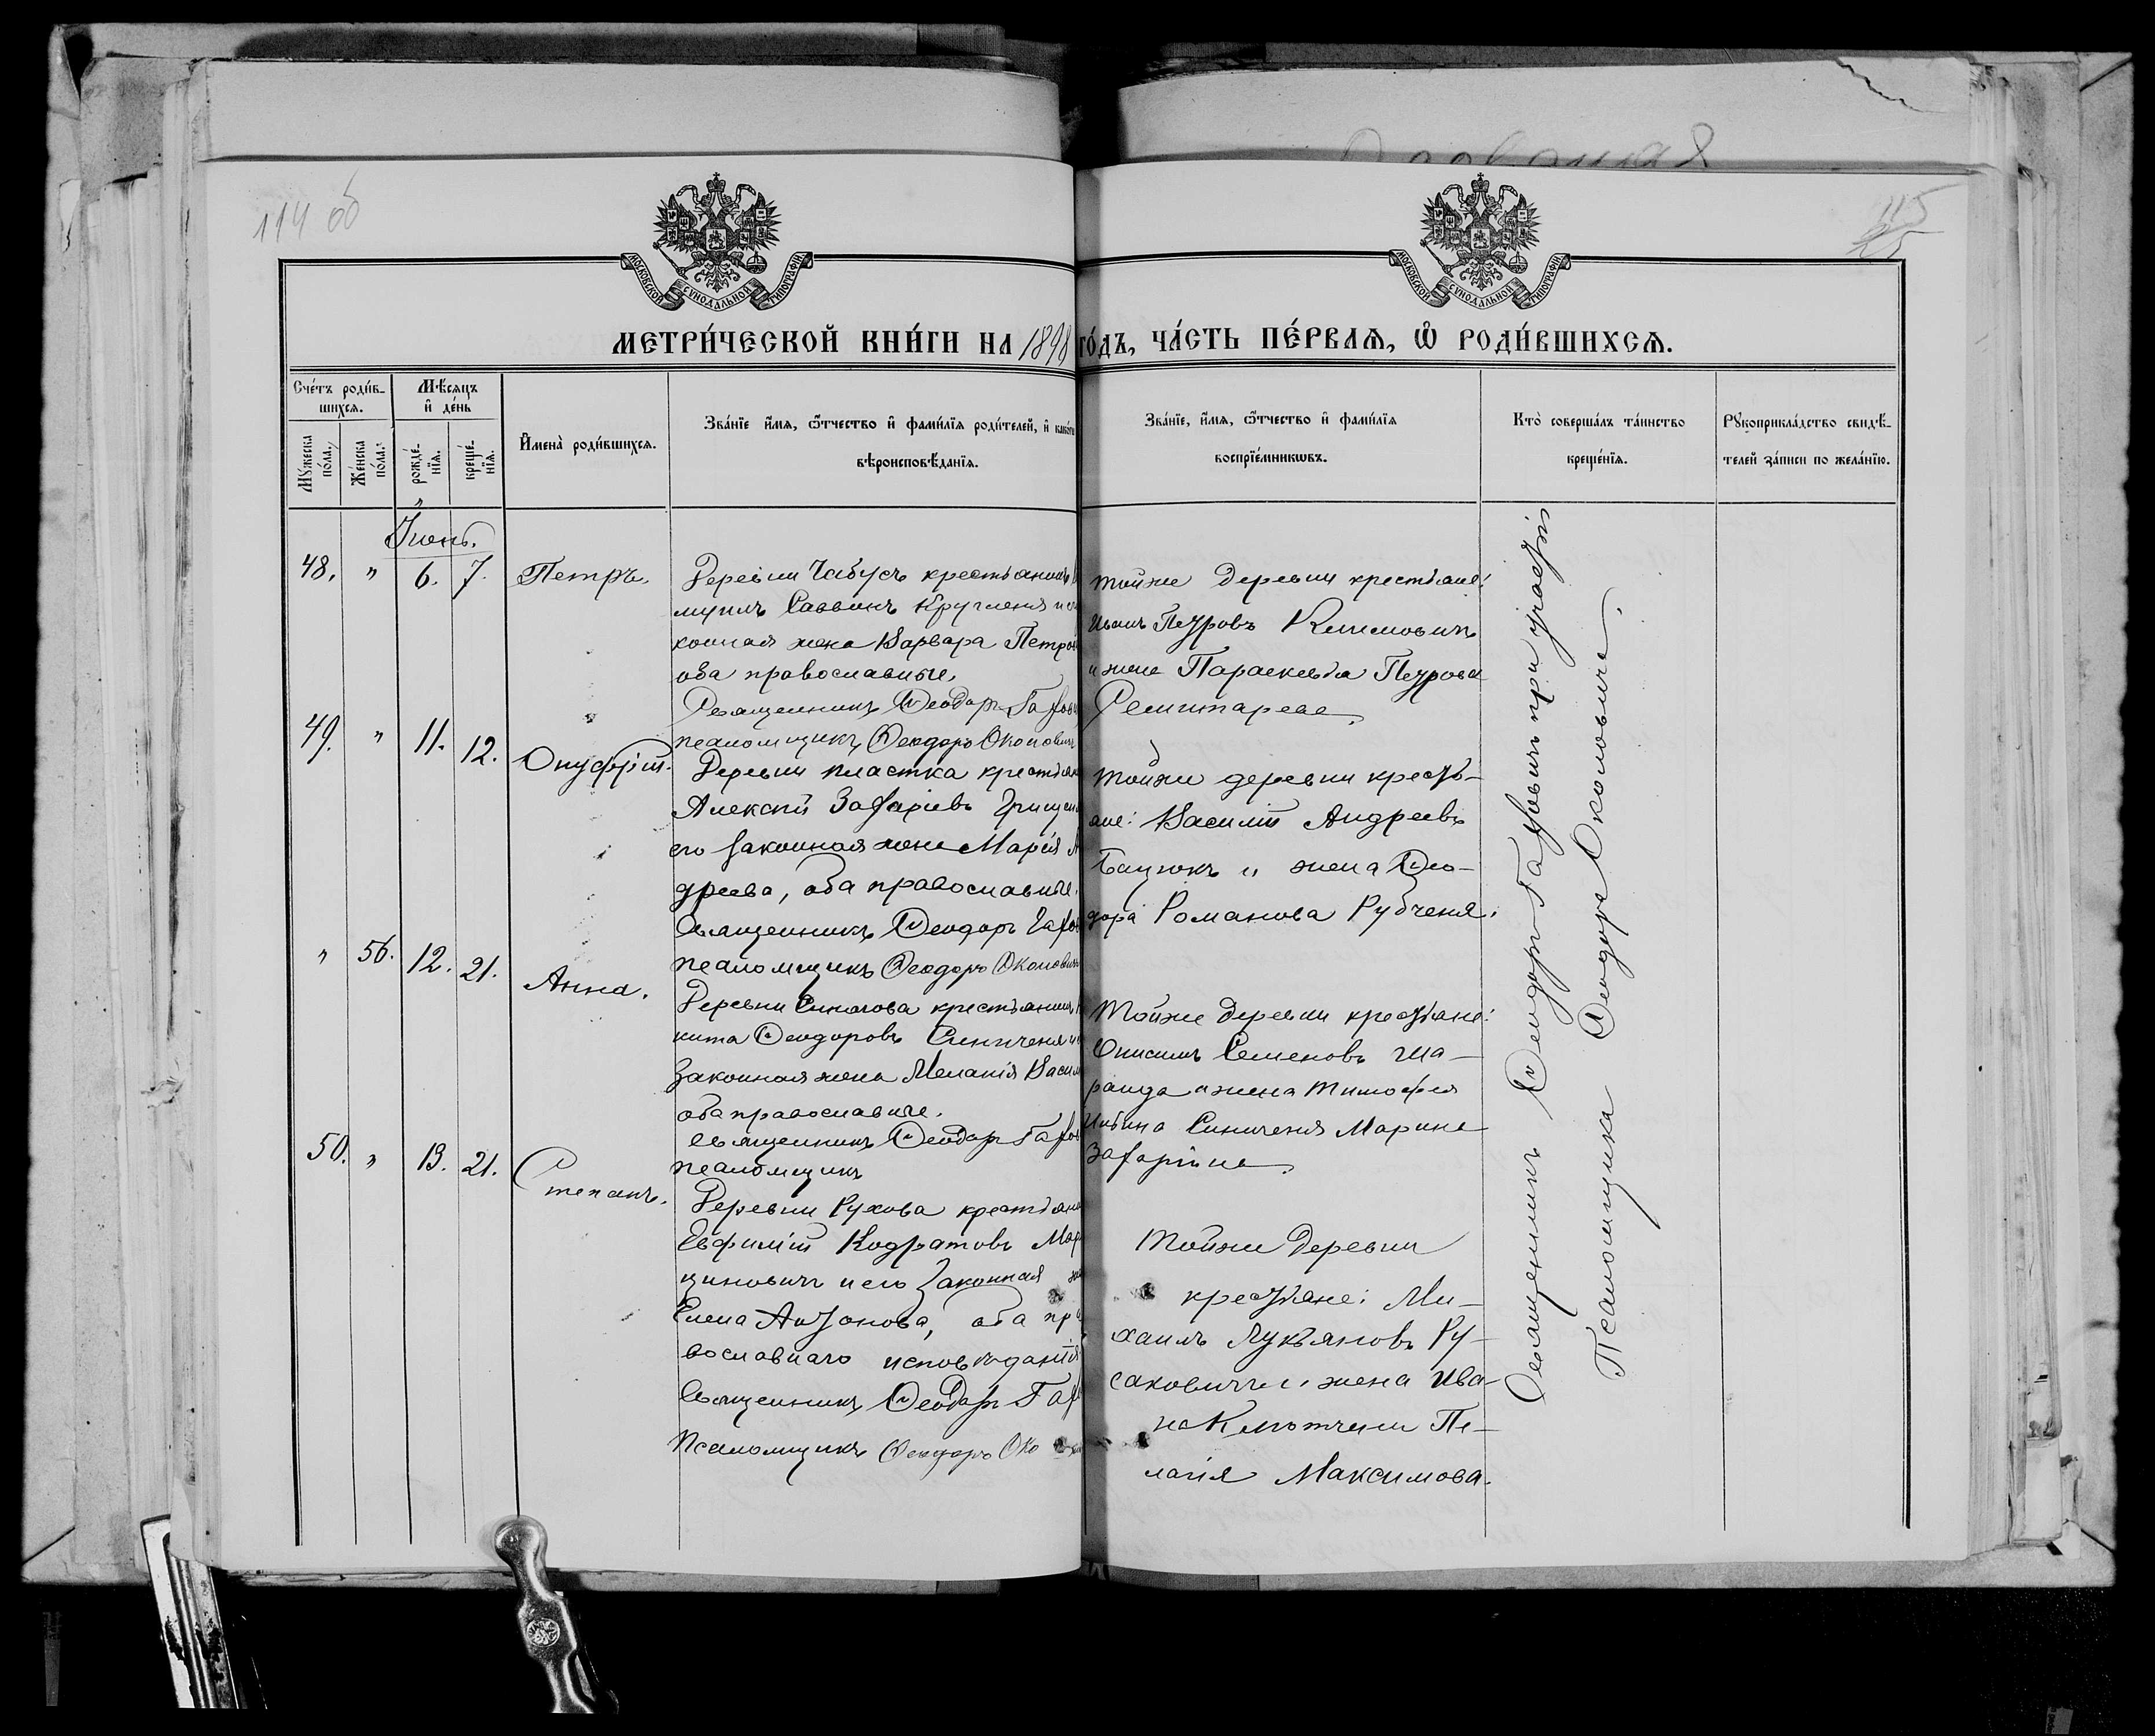 114 об
115
МОСКОВСКОЙ СѴНОДАЛЬНОЙ ТИПОГРАФІИ
МОСКОВСКОЙ СѴНОДАЛЬНОЙ ТИПОГРАФІИ
МЕТРИ́ЧЕСКОЙ КНИ́ГИ НА 1898 ГО́ДЪ, ЧА́СТЬ ПЕ́РВАѦ, Ѡ҆ РОДИ́ВШИХСѦ.
Сче́тъ роди́в-
шихсѧ.
Мꙋжеска по́ла.
Же́нска по́ла.
Мѣ́сѧцъ
и҆ де́нь
рожде́-
нїѧ.
креще́-
нїѧ.
И҆мена̀ роди́вшихсѧ.
Зва́нїе и҆́мѧ, ѻ҆́тчество и҆ фами́лїѧ роди́телей, и҆ како́гѡ
вѣроисповѣ́данїѧ.
Зва́нїе, и҆́мѧ, ѻ҆́тчество и҆ фами́лїѧ
воспрїе́мникѡвъ.
Кто̀ соверша́лъ та́инство
креще́нїѧ.
Рꙋкоприкла́дство свидѣ́-
телей за́писи по жела́нїю.
Іюнь.
48. " 6. 7. Петръ.
Деревни Чабусъ крестьянинъ
Саввинъ Кругленя и
конная жена Варвара Петров
оба православные.
Священникъ Ѳеодоръ Гахов
псаломщикъ Ѳеодоръ Околович
Тойже деревни крестьяне:
Иванъ Петровъ Климовичъ
и жена Параскевія Петрова
49. " 11. 12. Онуфрій.
Деревни Пластка крестьян
Алексѣй Захаріевъ Грицен
его законная жена Марія А
дреева, оба православные.
Священникъ Ѳеодоръ Гахов
псаломщикъ Ѳеодоръ Околович
Тойже деревни кресть-
яне: Василій Андреевъ
Бацюкъ и жена Ѳео-
дора Романова Рубченя.
" 56. 12. 21. Анна.
Деревни Синягова крестьянинъ
кита Ѳеодоровъ Синиченя и
законная жена Меланія Васил
оба православные.
Священникъ Ѳеодоръ Гахов
псаломщикъ
Тойже деревни крестьяне:
Онисимъ Семеновъ Ша-
ранда и жена Тимофея
Синиченя Марина
Захаріина.
50. " 13. 21. Степанъ.
Деревни Рухова крестьян
Евфимій Кодратовъ Мар
циновичъ и его законная
Елена Антонова, оба пра
вославнаго исповѣданія
Священникъ Ѳеодоръ Гах
Псаломщикъ Ѳеодоръ Око
Тойже деревни
крестьяне: Ми-
хаилъ Лукьяновъ Ру-
саковичъ и жена Ива-
на Клютчени Пе-
лагія Максимова.
Священникъ Ѳеодоръ Гаховичъ при участіи
Псаломщика Ѳеодора Околовича.